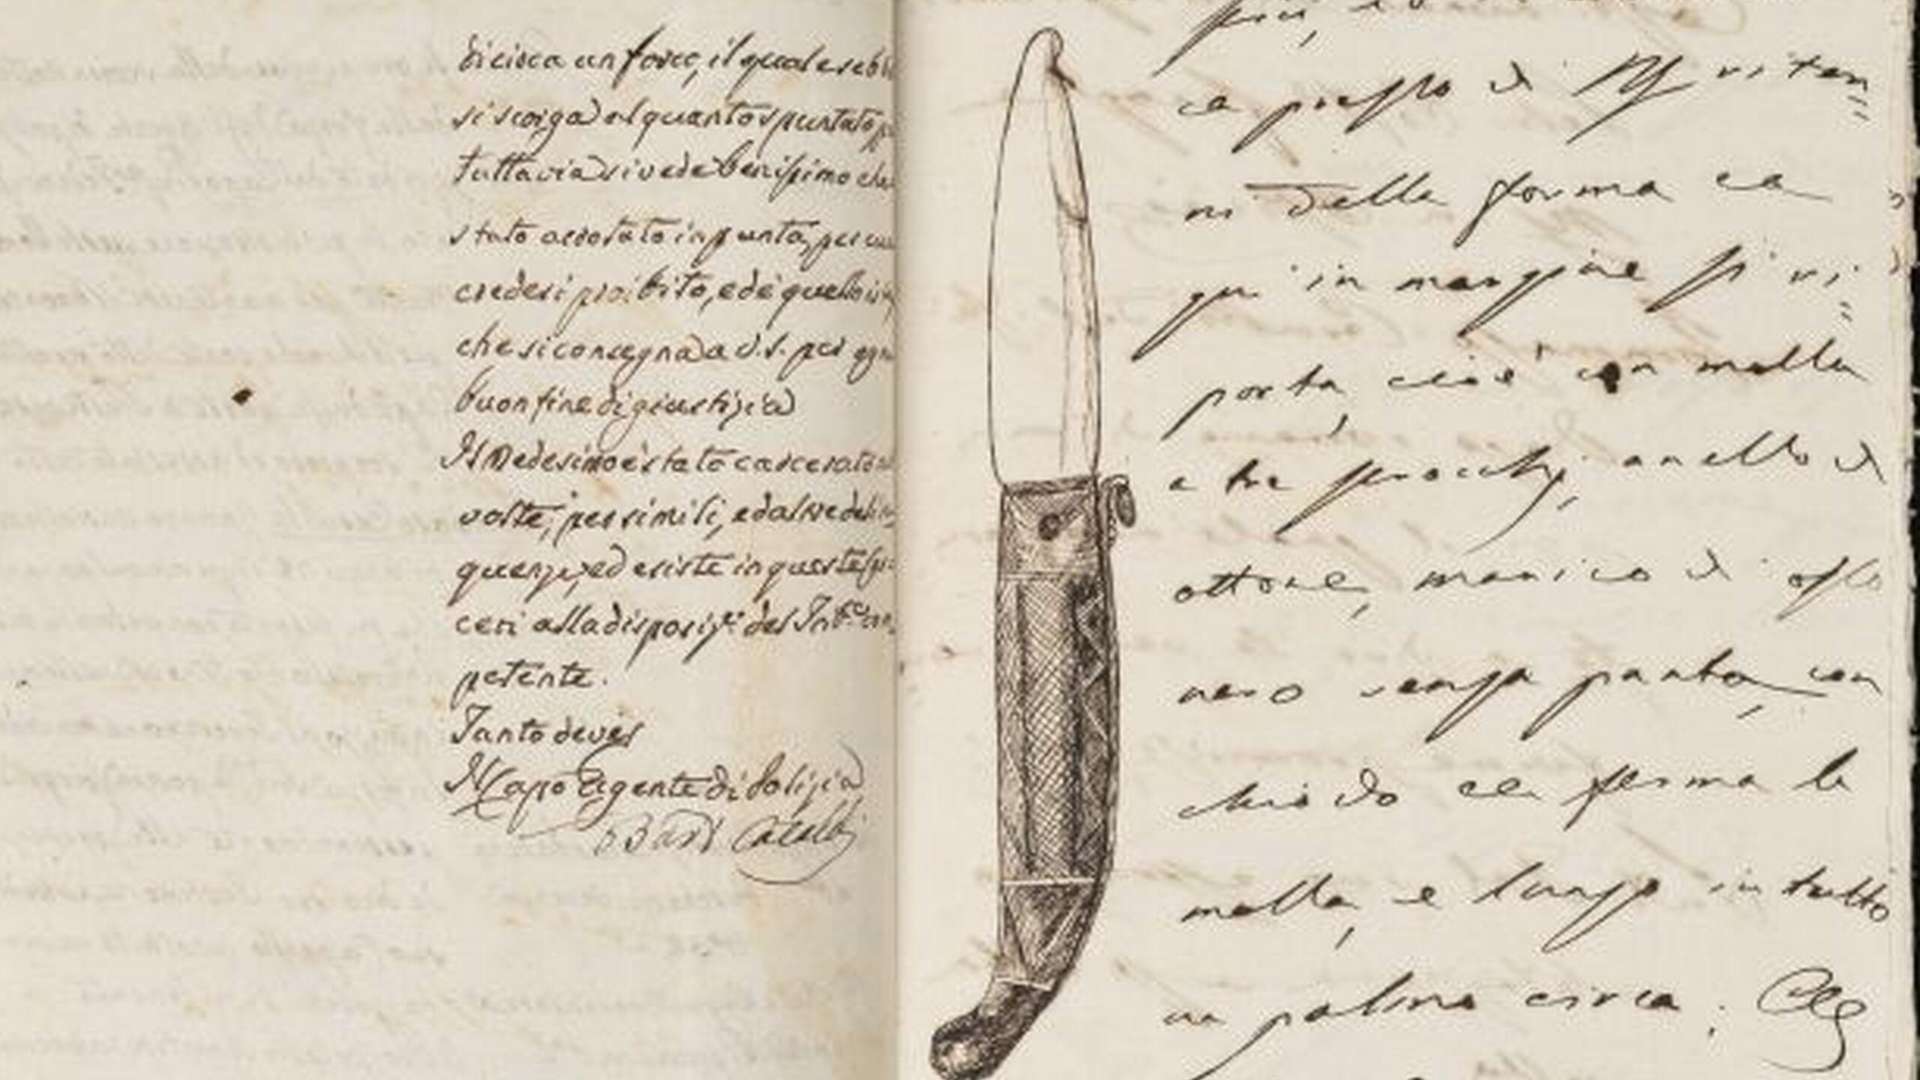 di cisca un forco, il quale sebb
si scorga alquanto spuntato, p
tuttavia si vede benissimo che
stato arrotato in punta, per cui
credesi proibito, ed è quello ist
che si consegna a V.S. per ogni
buon fine di giustizia
Il Medesimo è stato carcerato
volte, per simili, ed altre delin
quenze, ed esiste in queste Car
ceri alla disposiz.e del Trib.e com
petente.
Tanto deves
Il Capo Agente di Polizia
ca presso di
ni della forma ca
qui in margine si vi
porta, cioè con molla
a tre scrocchi, anello di
ottone, manico di osso
nero senza punta, con
chiodo che ferma la
molla, e lungo in tutto
un palmo circa;